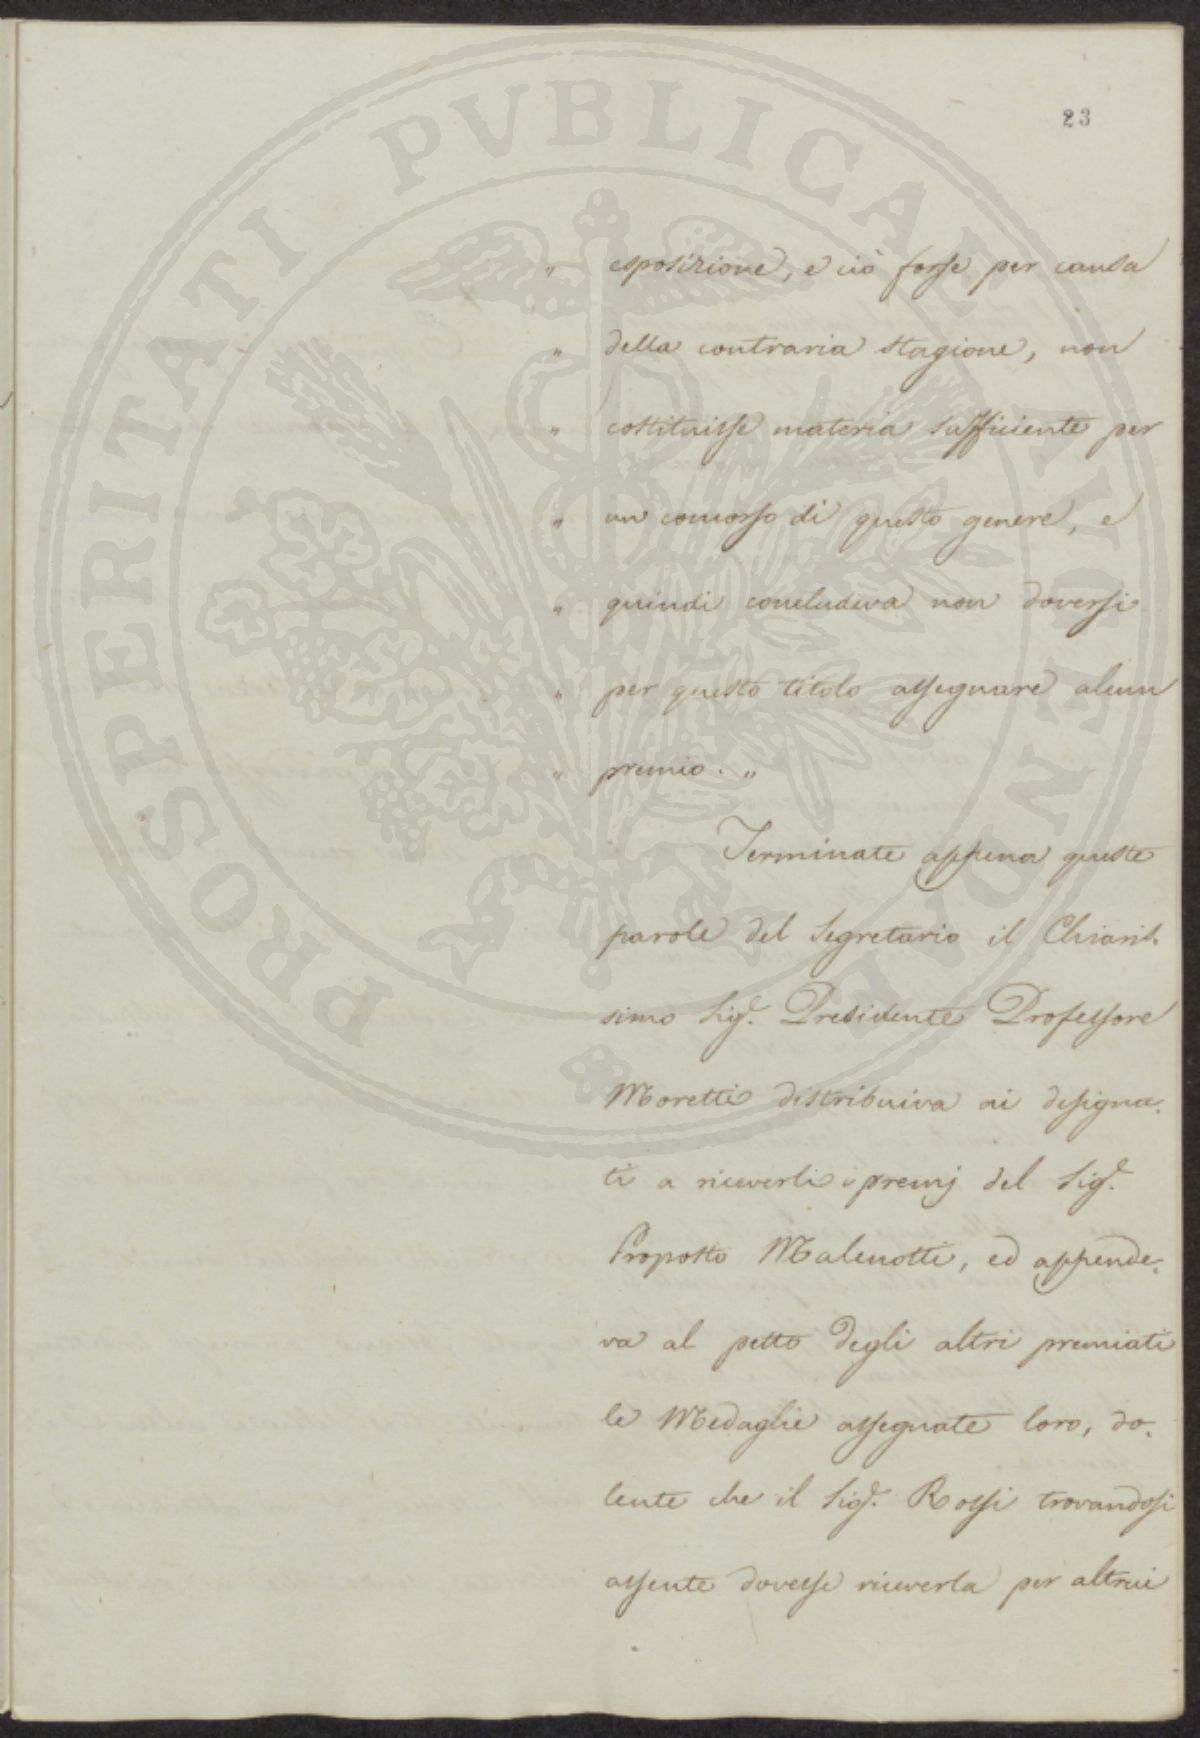 23
" esposizione, e ciò forse per causa
" della contraria stagione, non
" costituisse materia sufficiente per
" un concorso di questo genere, e
" quindi concludeva non doversi
" per questo titolo assegnare alcun
" premio. "
Terminate appena queste
parole del Segretario il Chiaris.
simo Sigr. Presidente Professore
Moretti distribuiva ai designa.
ti a riceverli i premj del Sigr.
Proposto Malenotti, ed appende.
va al petto degli altri premiati
le Medaglie assegnate loro, do.
lente che il Sigr. Rossi trovandosi
assente dovesse riceverla per altrui
PROSPERITATI PVBLICAE AVGENDAE